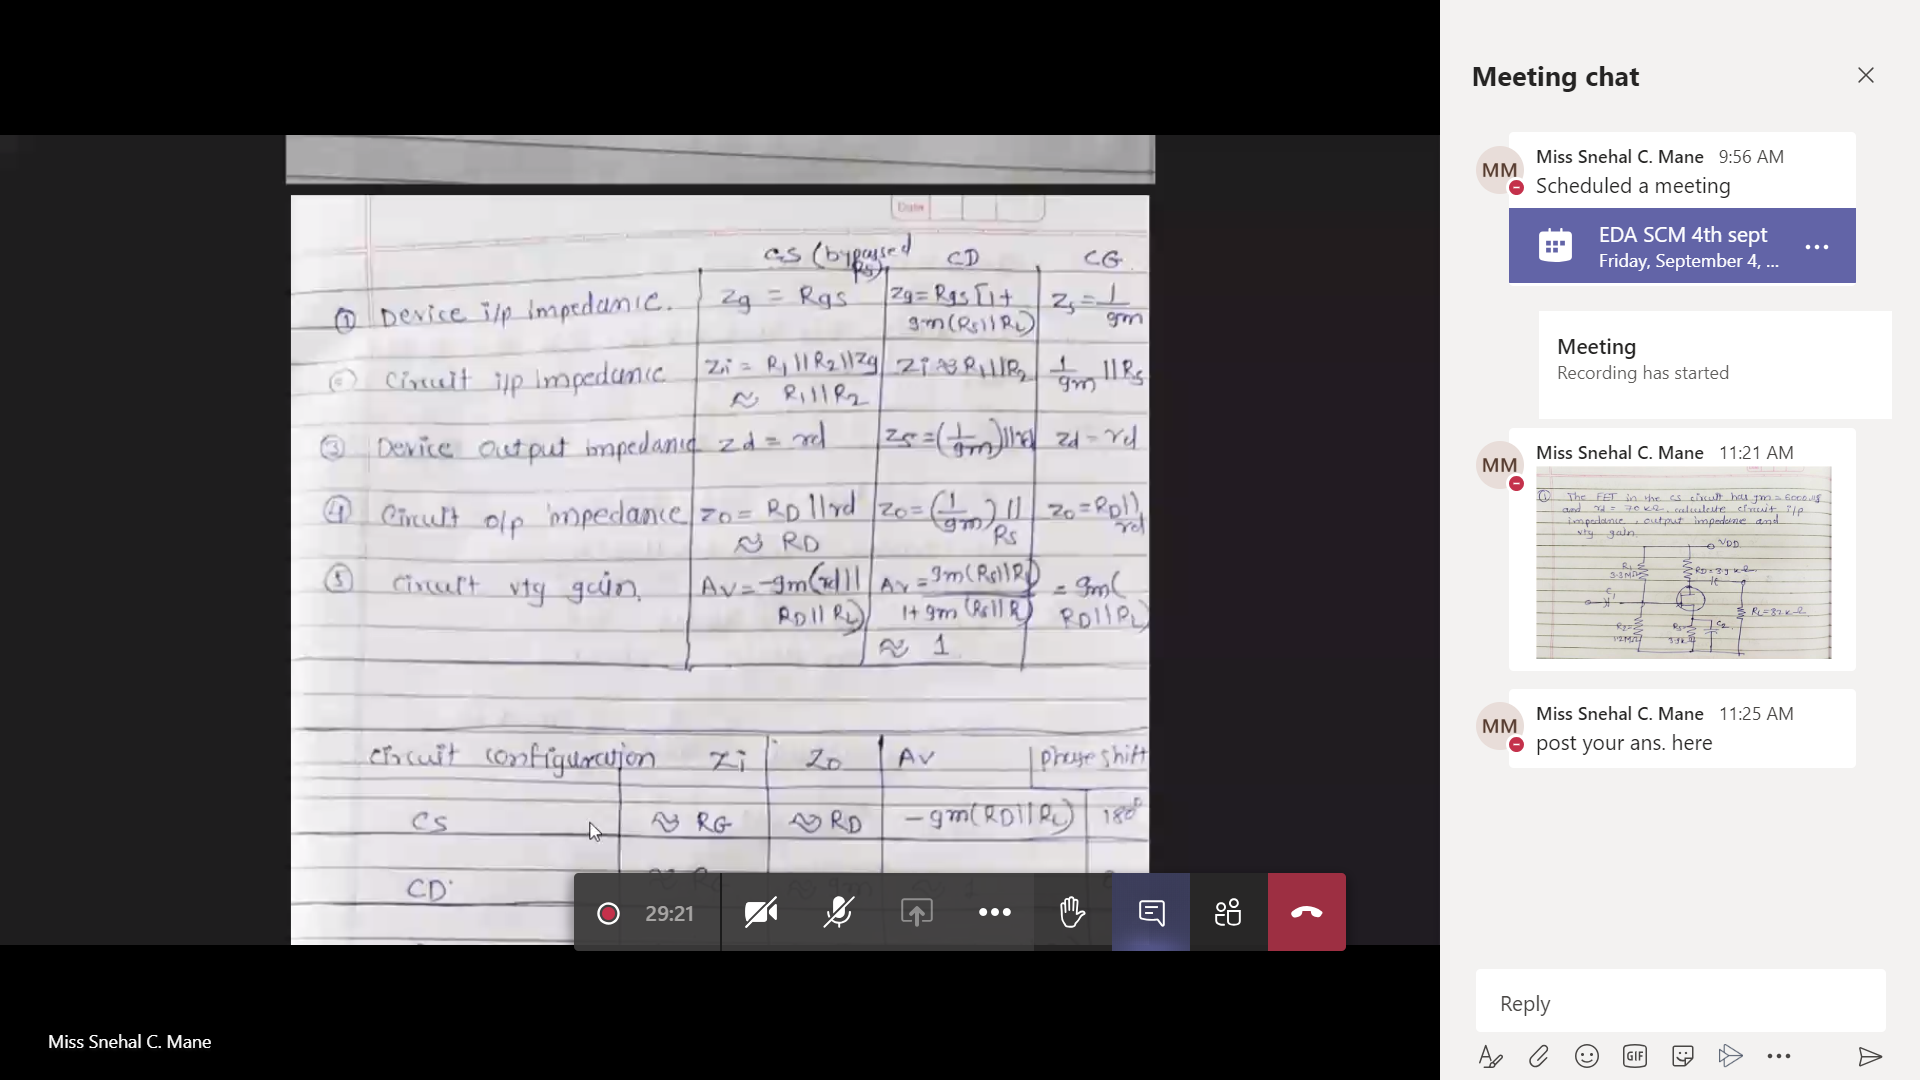 Date
CS (bypassed Rs) CD CG
① Device i/p impedance. Zg = Rgs Zg = Rgs [1+ gm(Rs||RL) Zs = 1/gm
② Circuit i/p impedance Zi = R1||R2||Zg ≈ R1||R2 Zi ≈ R1||R2 1/gm || Rs
③ Device output impedance Zd = rd Zs = (1/gm)||rd Zd = rd
④ Circuit o/p impedance Zo = RD||rd ≈ RD Zo = (1/gm) || Rs Zo = RD|| rd
⑤ circuit vtg gain. Av = -gm(rd|| RD||RL) Av = gm(Rs||RL) / 1+gm(Rs||R) ≈ 1 = gm( RD||RL)
circuit configuration Zi Zo Av phase shift
CS ≈ RG ≈ RD -gm(RD||RL) 180°
CD
29:21
Miss Snehal C. Mane
Meeting chat
MM
Miss Snehal C. Mane 9:56 AM
Scheduled a meeting
EDA SCM 4th sept
Friday, September 4, ...
Meeting
Recording has started
MM
Miss Snehal C. Mane 11:21 AM
① The FET in the CS circuit has gm = 6000 μs
and rd = 70 kΩ. calculate circuit i/p
impedance, output impedance and
vtg gain.
VDD
R1
3.3MΩ
RD = 3.9 kΩ
C1
RL = 82 kΩ
R2
1.2MΩ
Rs
C2
MM
Miss Snehal C. Mane 11:25 AM
post your ans. here
Reply
GIF